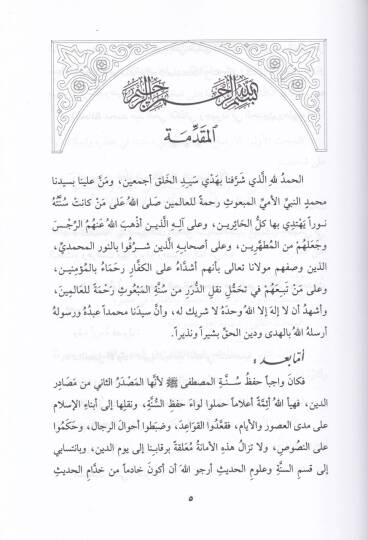 بسم الله الرحمن الرحيم
المقدِّمَة
الحمدُ للهِ الَّذي شَرَّفنا بهَدْيِ سَيِدِ الخَلق أجمعين، ومَنَّ علينا بسيدنا
محمدٍ النبيِّ الأميِّ المبعوثِ رحمةً للعالمين صَلى اللهُ عَلى مَنْ كانتْ سُنَّتُهُ
نوراً يَهْتَدِي بها كلُّ الحَائِرين، وعلى آلِهِ الَّذين أذْهبَ اللهُ عَنهُم الرِّجْسَ
وجَعَلهُمْ من المُطهَّرِين، وعلى أصحابِهِ الَّذين شَرُفُوا بالنور المحمديِّ،
الذين وصفهم مولانا تعالى بأنهم أشدَّاءُ على الكفَّارِ رحَمَاءُ بالمُؤمِنِين،
وعلى مَنْ تَبِعَهُمْ في تحَمُّلِ نقلِ الدُّرَرِ من سُنَّةِ المَبْعُوثِ رَحْمَةً للعَالمِينَ،
وأشهدُ أن لا إلهَ إلا اللهُ وحدَهُ لا شريك له، وأنَّ سيدَنا محمداً عبدُهُ ورسولُهُ
أرسلهُ اللهُ بالهدى ودينِ الحقِّ بشيراً ونذيراً.
أمّا بعد:
فكانَ واجباً حفظُ سُنَّةِ المصطفى ﷺ لأنَّها المَصْدَرُ الثاني من مَصَادِرِ
الدين، فهيأَ اللهُ أئِمَّةً أعلاماً حملوا لواءَ حفظِ السُّنَّةِ، ونقلِها إلى أبناءِ الإسلام
على مدى العصورِ والأيام، فقعَّدُوا القوَاعِدَ، وضبَطُوا أحوالَ الرجالِ، وحَكَمُوا
على النُّصوصِ، ولا تزالُ هذِهِ الأمانةُ مُعَلقةً برقابنا إلى يوم الدين، وبانتسابي
إلى قسمِ السنَّةِ وعلومِ الحديثِ أرجو اللهَ أن أكونَ خادماً من خدَّامِ الحديثِ
٥